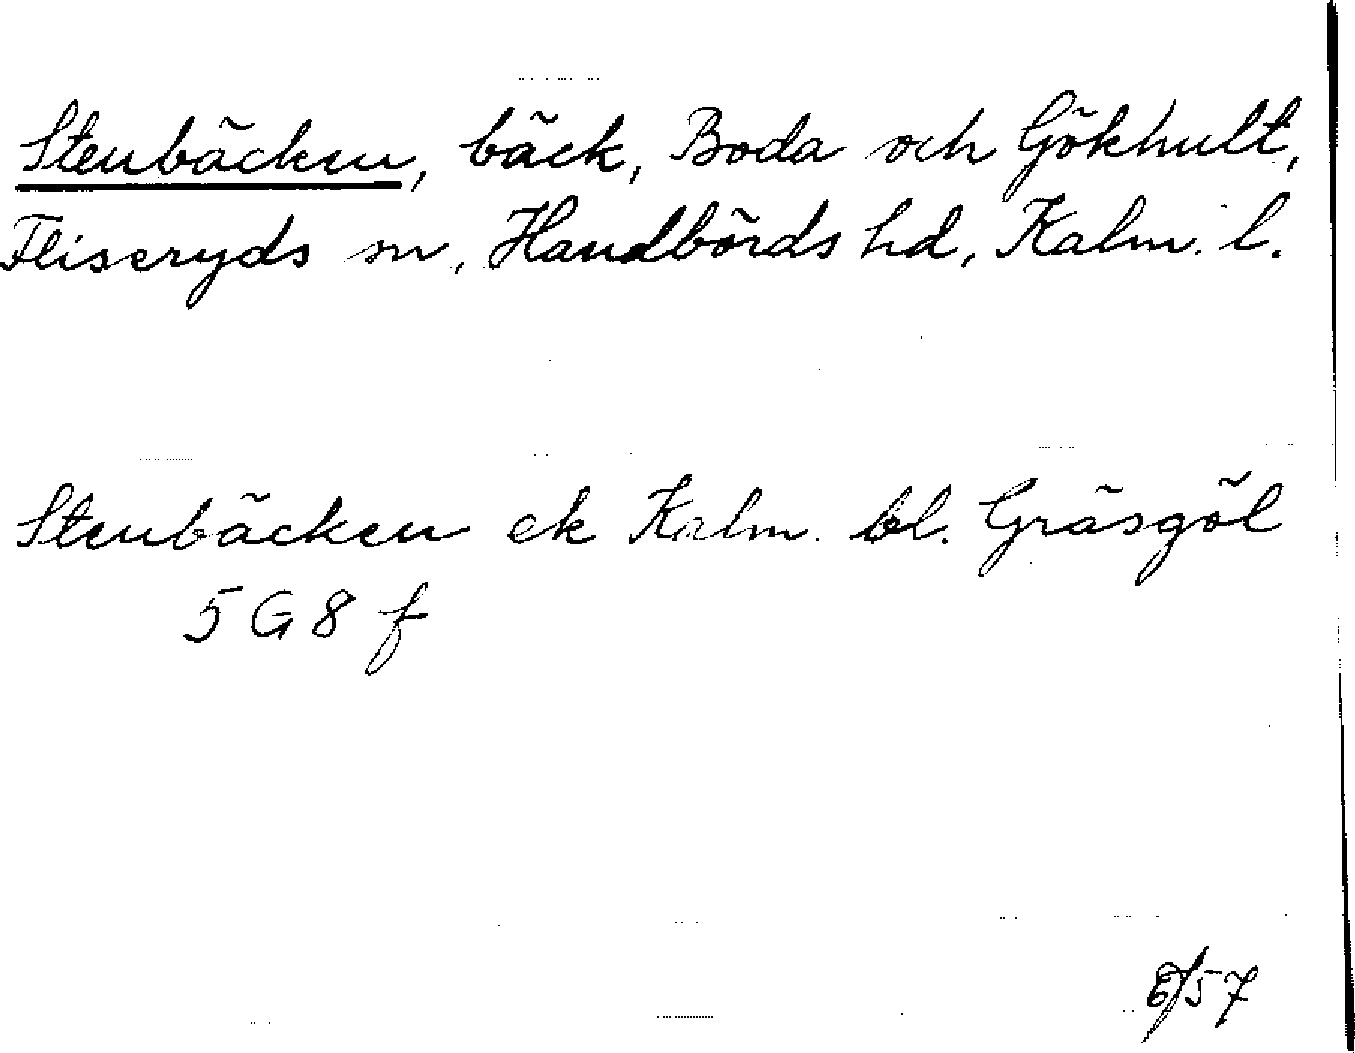 Stenbäcken, bäck, Boda och Gökhult,
Fliseryds sn, Handbörds hd, Kalm. l.
Stenbäcken ek Kalm. bl. Gräsgöl
5 G 8 f